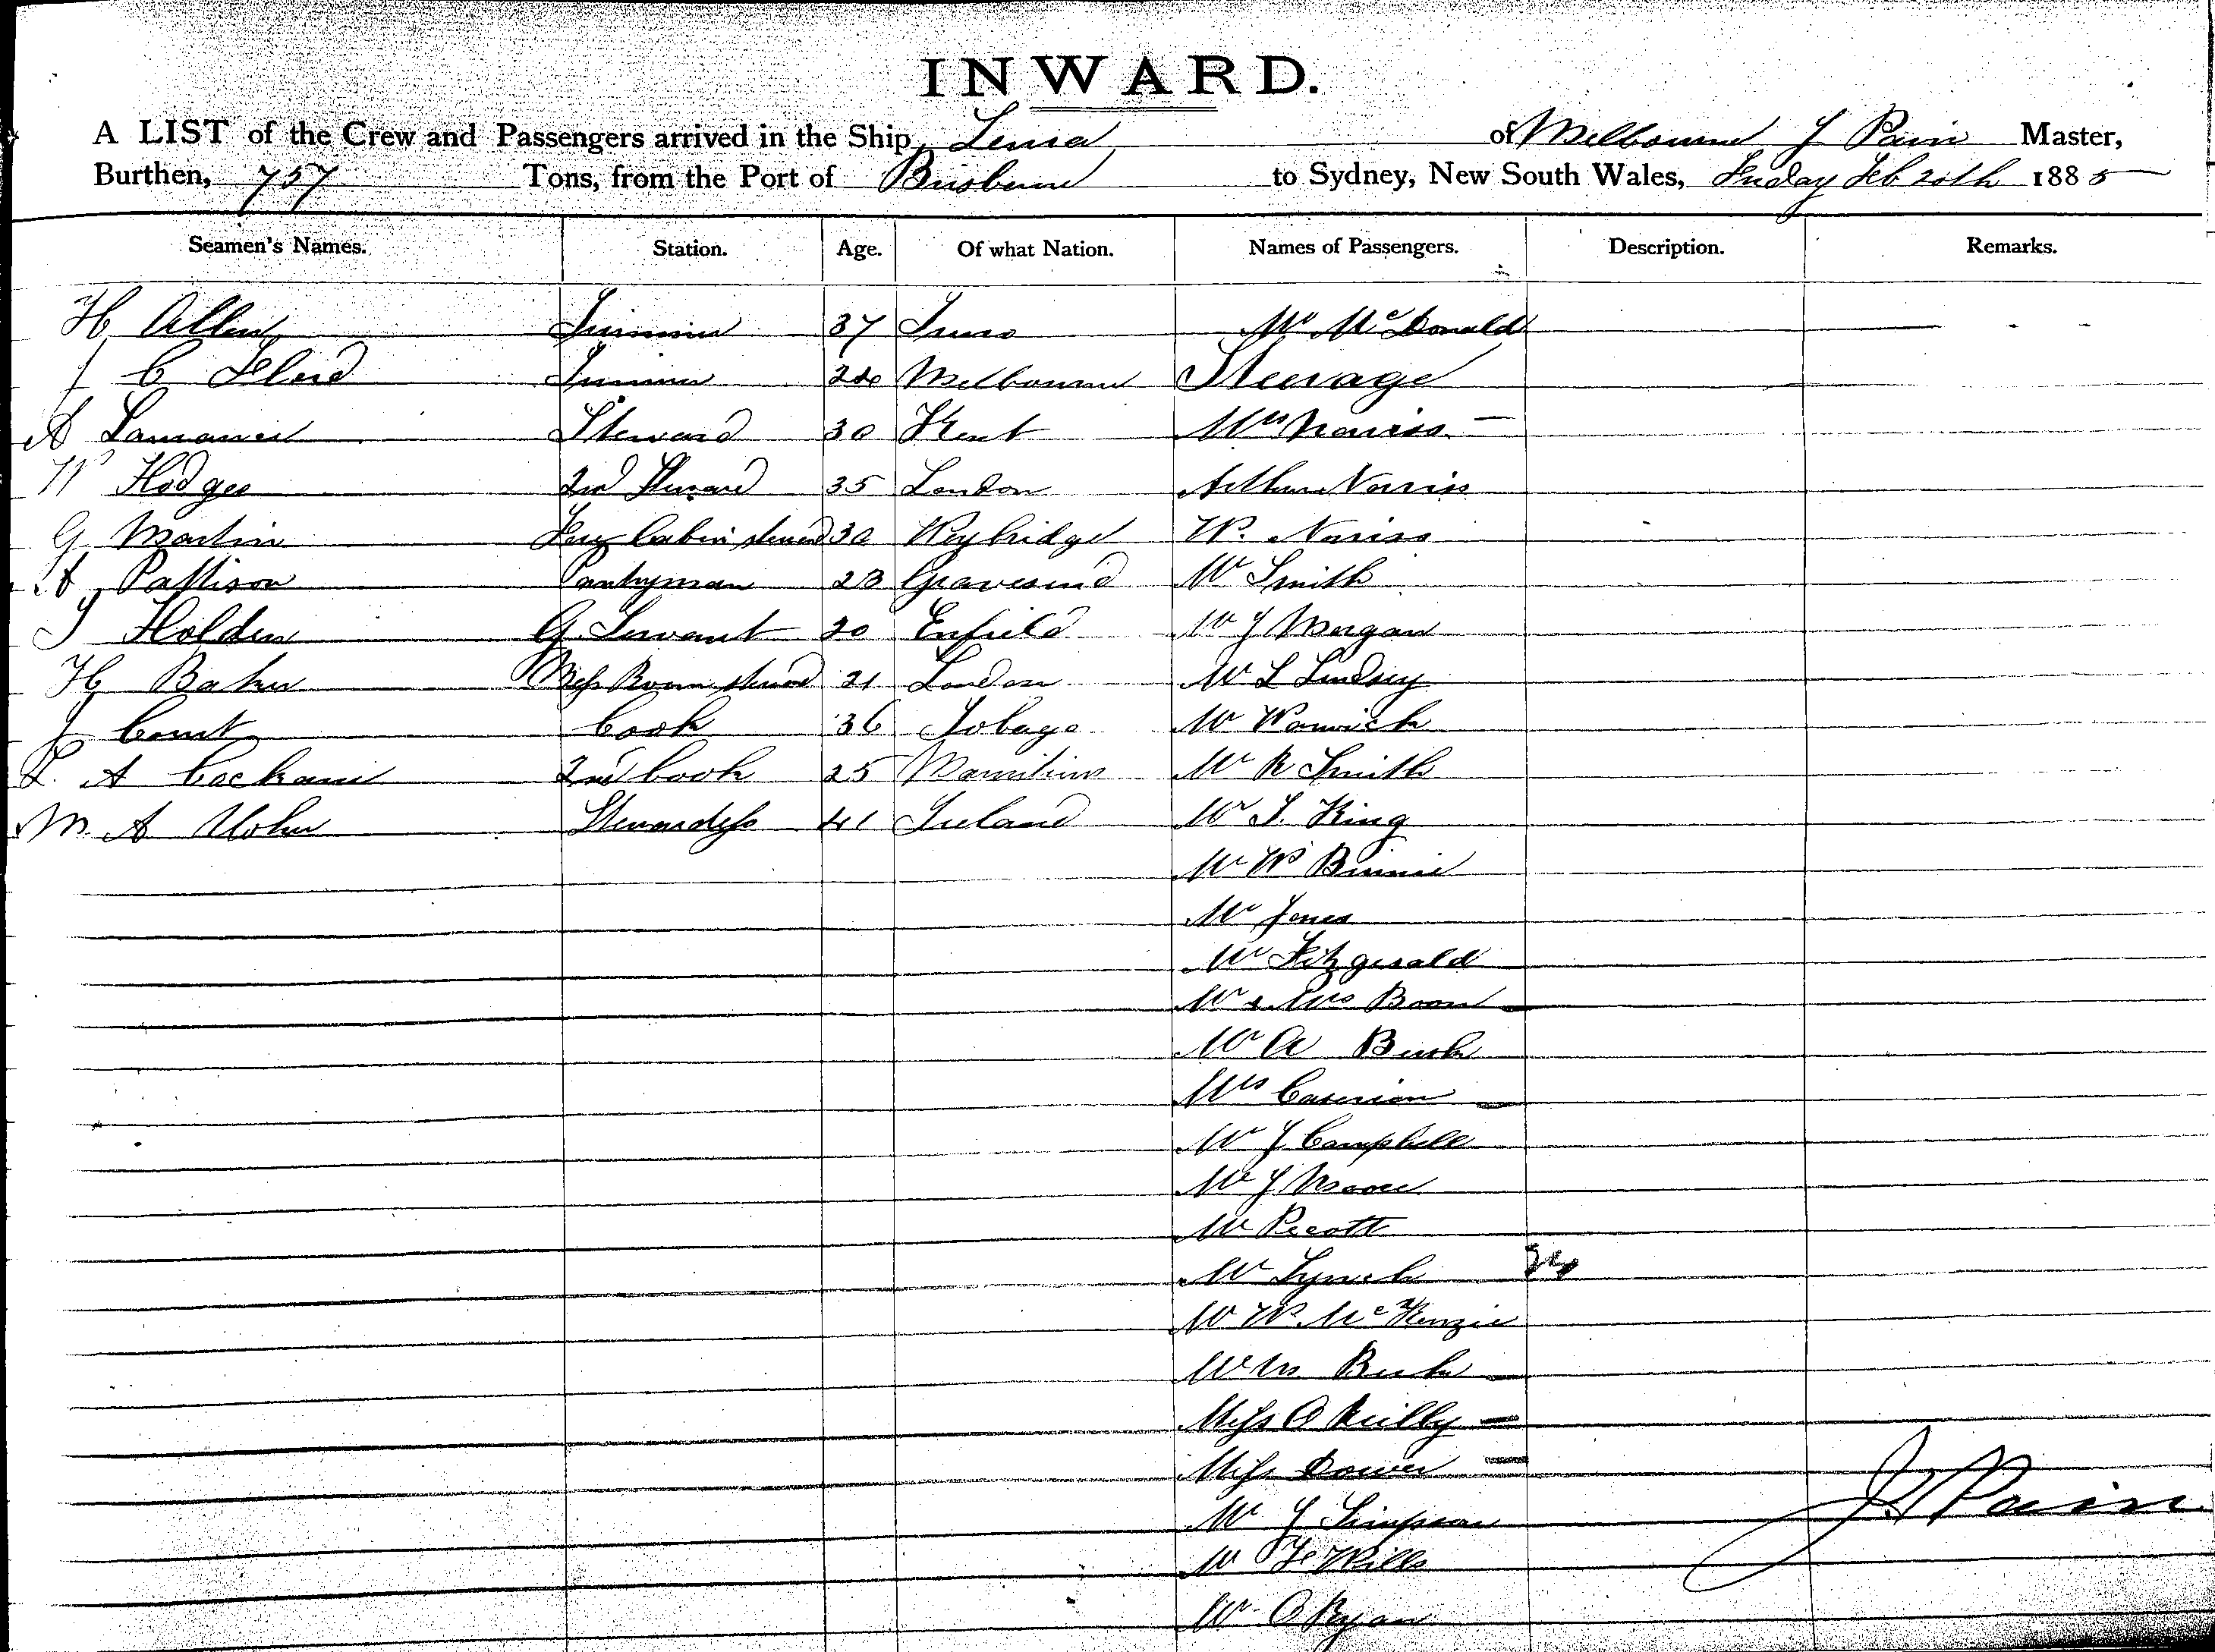 INWARD.
A LIST of the Crew and Passengers arrived in the Ship, of Melbourne J Pain Master,
Burthen, 757 Tons, from the Port of Brisbane to Sydney, New South Wales, Friday Feb 20th 1885
Seamen's Names. Station. Age. Of what Nation. Names of Passengers. Description. Remarks.
H Allen Trimmer 37 Truro Mr McDonald
J C Trimmer Melbourne Steerage
A Steward 30 Kent Mrs Norriss
W Hodges 2nd Steward 35 London Arthur Norriss
G Martin Fore Cabin steward 30 Weybridge W. Norriss
A Pattison Pantryman 23 Gravesend Mr Smith
J Holden G. Servant 20 Enfield Mr J Morgan
H Baker Mess Room steward 21 London Mr L Lindsey
J Count Cook 36 Tobago Mr Warwick
L. A 2nd Cook 25 Mauritius Mr R Smith
M. A Stewardess 41 Ireland Mr T. King
Mr W Binnie
Mr Jones
Mr Fitzgerald
Mr & Mrs Boon
Mr A Bush
Mrs
Mr J Campbell
Mr J Moore
Mr Pecott
Mr Lynch
Mr W. McKenzie
Bush
Miss O Reilly
Miss Dower
Mr J Simpson
Mr F Wills
Mr O Ryan
J. Pain